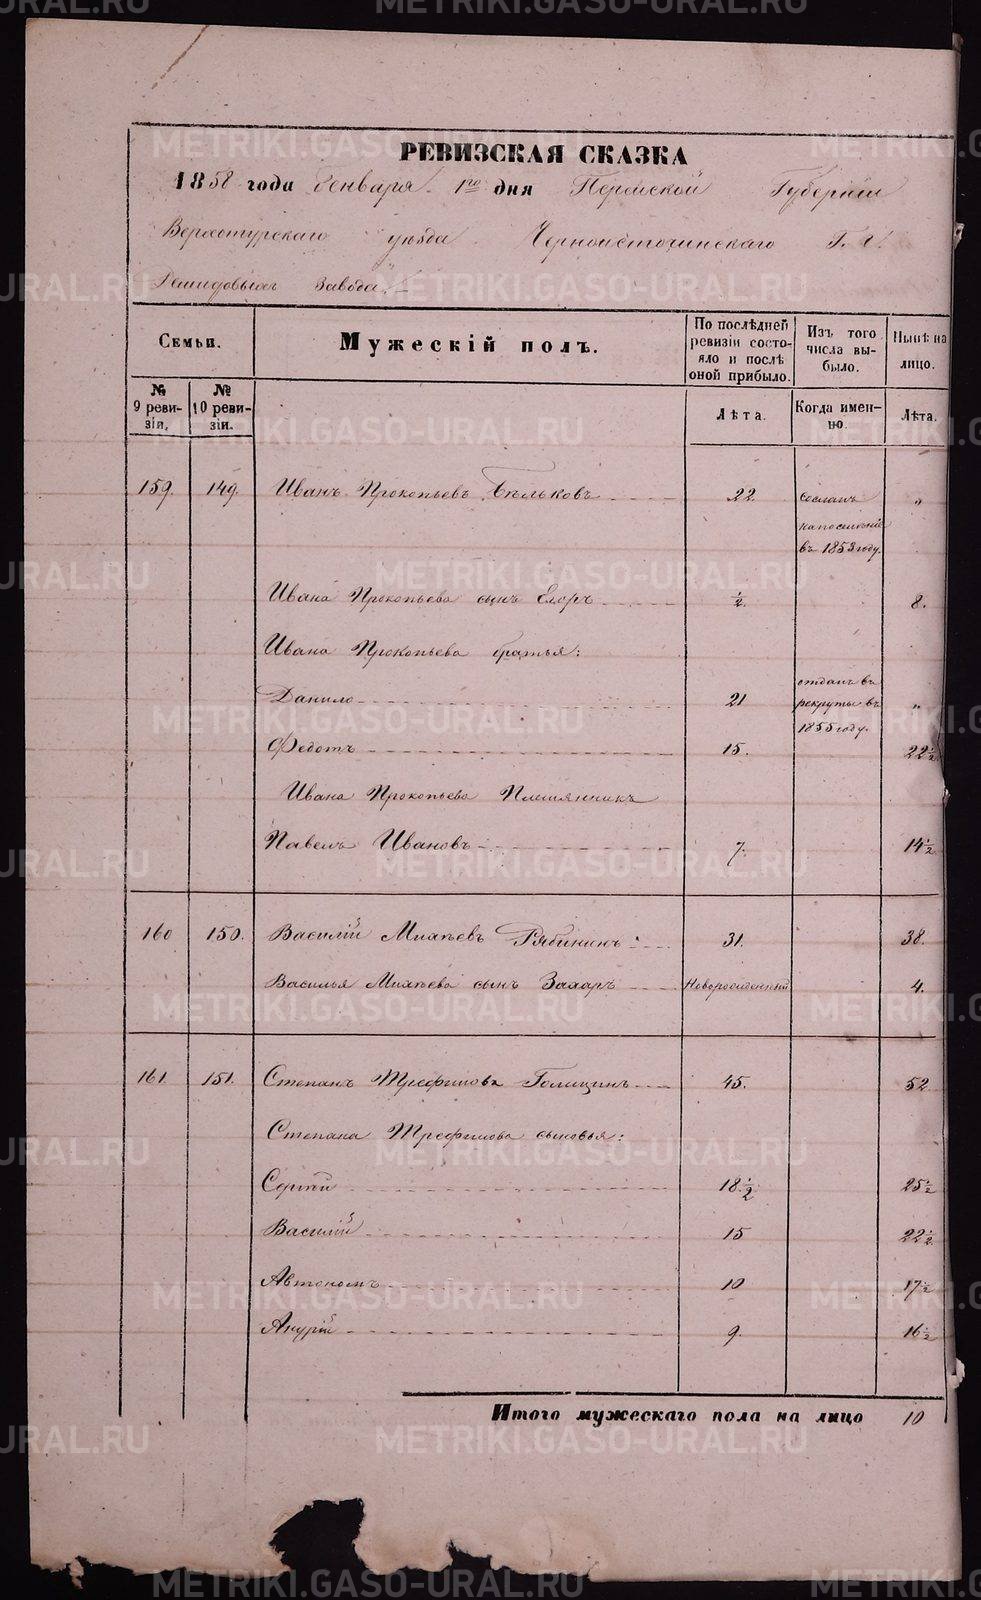 РЕВИЗСКАЯ СКАЗКА
1858 года Генваря 1го дня Пермской Губернии
Верхотурскаго уѣзда Черноисточинскаго Г. г.
Демидовыхъ завода
Семьи.
Мужескій полъ.
По послѣдней ревизіи состояло и послѣ оной прибыло.
Изъ того числа выбыло.
Нынѣ на лицо.
№ 9 ревизіи.
№ 10 ревизіи.
Лѣта.
Когда именно.
Лѣта.
159. 149. Иванъ Прокопьевъ Бѣльковъ 22. сосланъ на поселеніе въ 1853 году. „
Ивана Прокопьева сынъ Егоръ ½. 8.
Ивана Прокопьева братья:
Данило 21 отданъ въ рекруты въ 1855 году. „
Федотъ 15. 22½
Ивана Прокопьева Племянникъ
Павелъ Ивановъ 7. 14½
160 150. Василій Михѣевъ Рябининъ 31. 38.
Василья Михѣева сынъ Захаръ Новорожденный 4.
161 151. Степанъ Трефиловъ Голицинъ 45. 52
Степана Трефилова сыновья:
Сергѣй 18½ 25½
Василій 15 22½
Автономъ 10 17½
Анурій 9. 16½
Итого мужескаго пола на лицо 10
METRIKI.GASO-URAL.RU